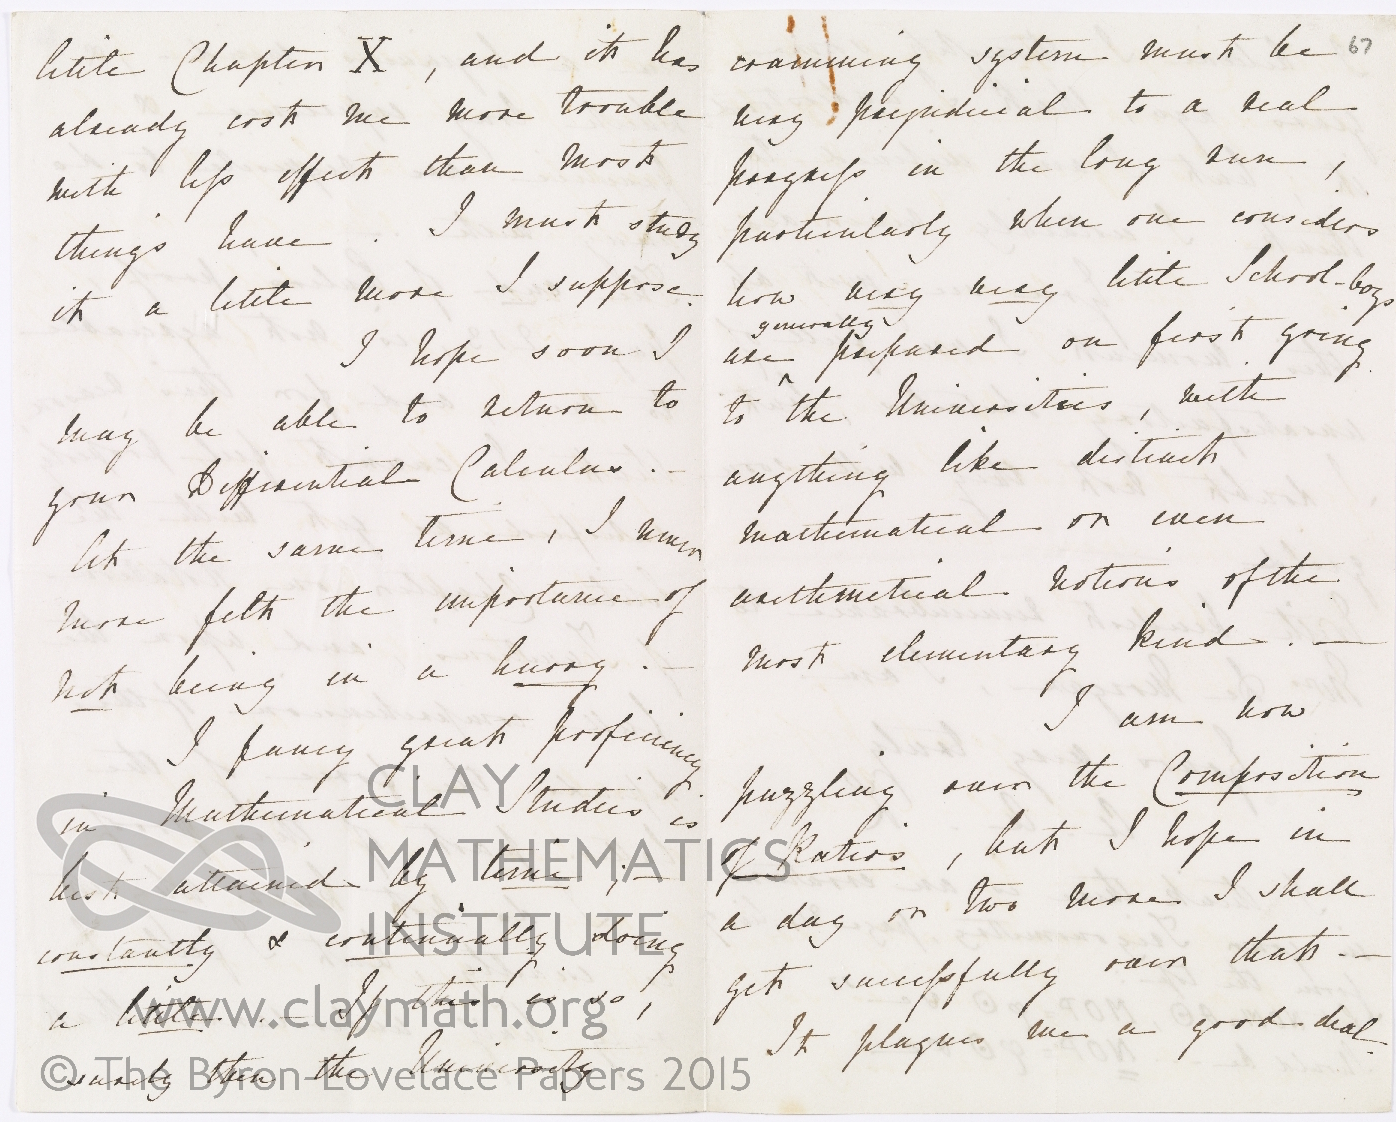 little Chapter X, and it has
already cost me more trouble
with less effect than most
things have. I must study
it a little more I suppose.
I hope soon I
may be able to return to
your Differential Calculus. —
At the same time, I never
more felt the importance of
not being in a hurry. —
I fancy great proficiency
in Mathematical Studies is
best attained by time; —
constantly & continually doing
a little. — If this is so,
surely then the University
67
cramming system must be
very prejudicial to a real
progress in the long run,
particularly when one considers
how very very little School-boys
generally
are ^ prepared on first going
to the Universities, with
anything like distinct
mathematical or even
arithmetical notions of the
most elementary kind. —
I am now
puzzling over the Composition
of Ratios, but I hope in
a day or two more I shall
get successfully over that. —
It plagues me a good deal.
CLAY
MATHEMATICS
INSTITUTE
www.claymath.org
© The Byron-Lovelace Papers 2015